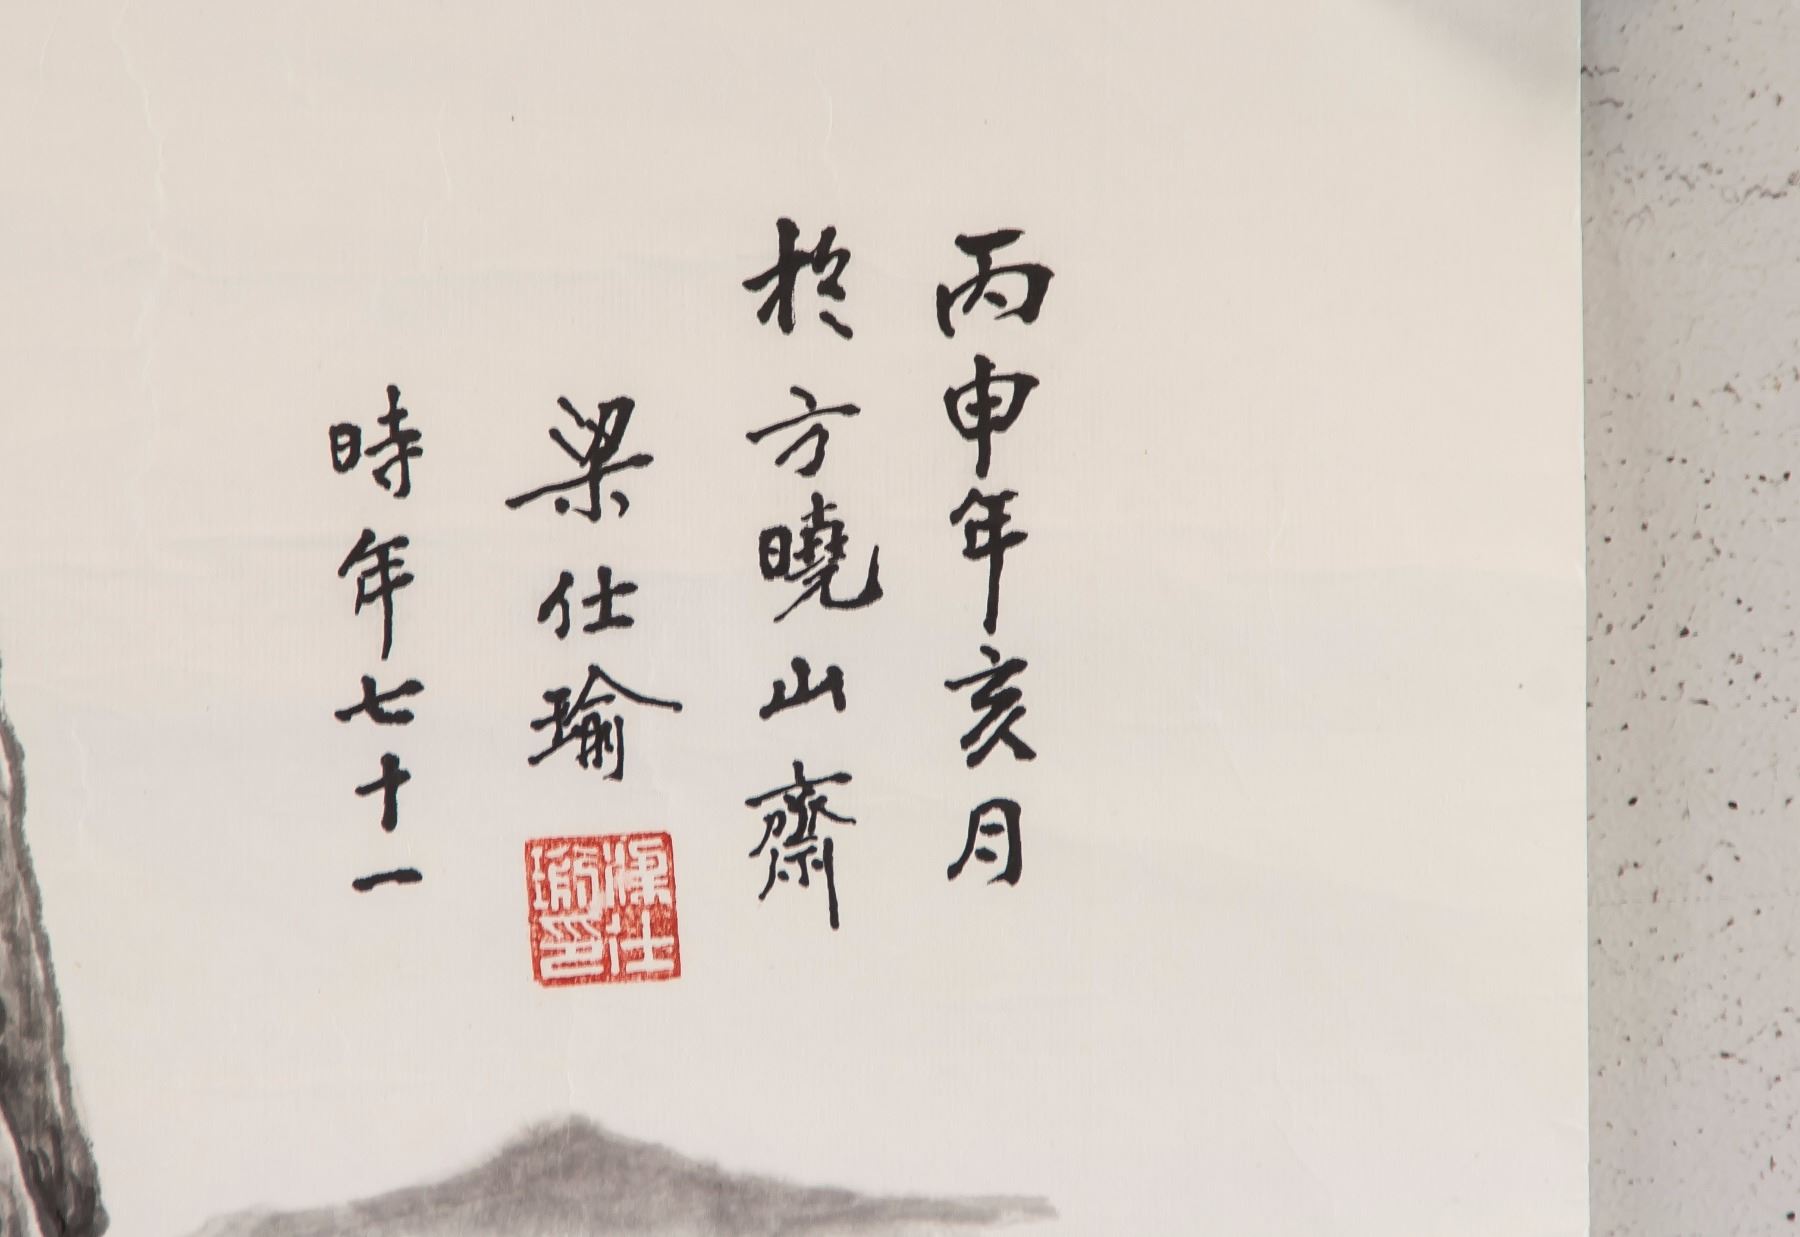 丙申年亥月
於方曉山齋
梁仕瑜
時年七十一
梁仕
瑜印